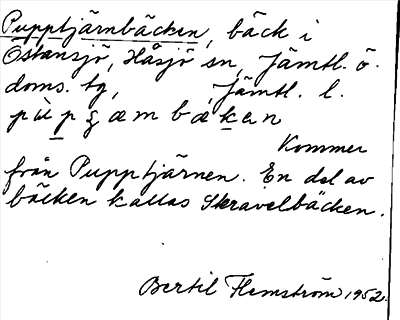 Pupptjärnbäcken, bäck i
Östansjö, Håsjö sn, Jämtl. ö.
doms. tg, Jämtl. l.
Kommer
från Pupptjärnen. En del av
bäcken kallas Skravelbäcken.
Bertil Flemström 1952.